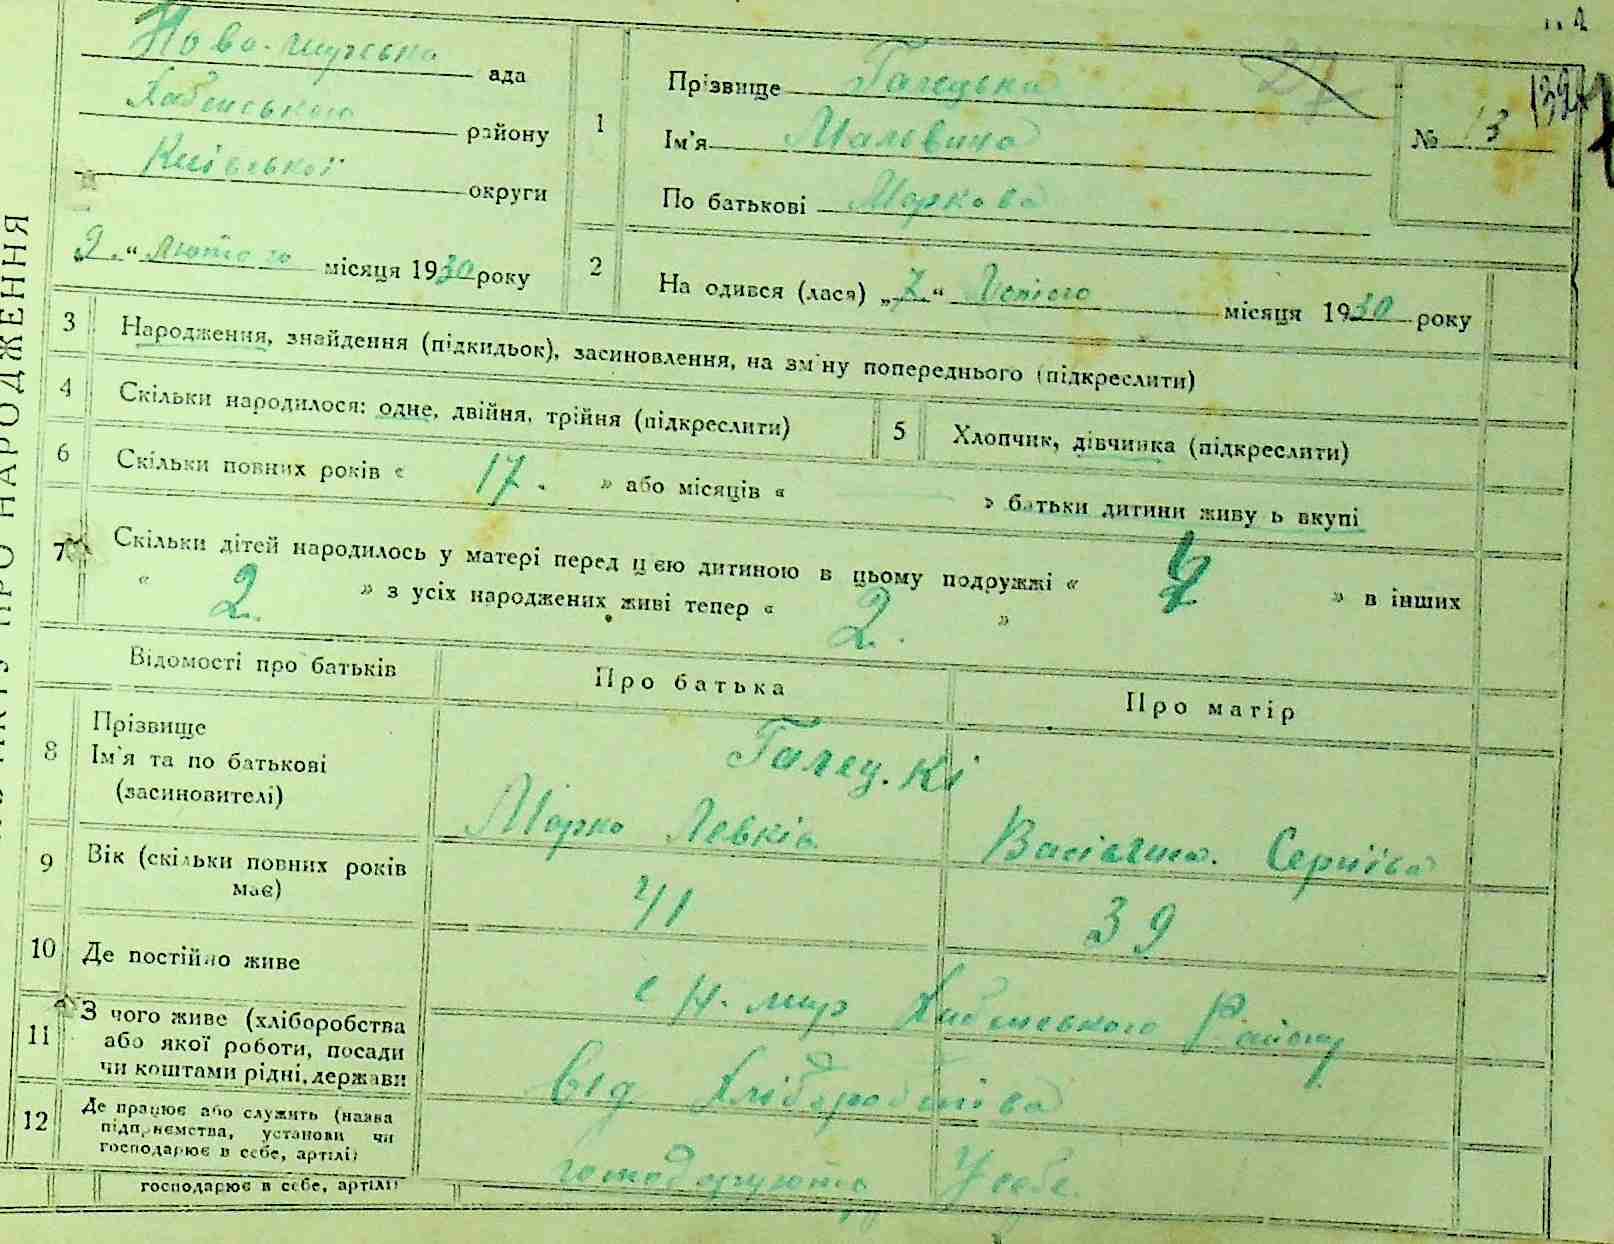 Ново-мирська ада
Хабенського району
Київської округи
„9.“ лютого місяця 1930 року
1
Прізвище Галецька
Ім'я Мальвина
По батькові Маркова
№ 13
139
27
2
На одився (лася) „7“ лютого місяця 1930 року
3 Народження, знайдення (підкидьок), засиновлення, на зміну попереднього (підкреслити)
4 Скільки народилося: одне, двійня, трійня (підкреслити)
5 Хлопчик, дівчинка (підкреслити)
6 Скільки повних років « 17. » або місяців « — » батьки дитини живу ь вкупі
7 Скільки дітей народилось у матері перед цією дитиною в цьому подружжі « » в інших
« 2. » з усіх народжених живі тепер « 2. »
Відомості про батьків
Про батька
Про матір
8 Прізвище
Ім'я та по батькові
(засиновителі)
Галец.кі
Марко Левків
Васілина Сергіїва
9 Вік (скільки повних років має)
41
39
10 Де постійно живе
с Н. мир Хабенського Району
11 З чого живе (хліборобства
або якої роботи, посади
чи коштами рідні, держави
від хліборобства
12 Де працює або служить (назва
підприємства, установи чи
господарює в себе, артілі)
господарюють У себе.
господарює в себе, артілі)